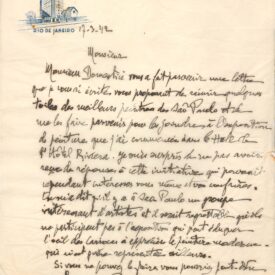 RIO DE JANEIRO
17-3-42
Monsieur
Monsieur vous a fait parvenir une lettre
que je vous ai écrite vous proposant de réunir quelques
toiles des meilleurs peintres de São Paulo et de
me les faire parvenir pour les joindre à l'exposition
de peinture que j'ai dans le Hall de
l'Hôtel Riviera. Je suis surpris de ne pas avoir
reçu de réponse à cette initiative qui pourrait
cependant intéresser vous même et vos confrères.
On m'a dit qu'il y a à São Paulo un groupe
intéressant d'artistes et il serait regrettable qu'ils
ne participent pas à l'exposition qui peut éduquer
l'œil des Cariocas à apprécier la peinture moderne
qui n'est guère représentée ailleurs.
Si vous ne pouvez le faire vous pourriez peut-être